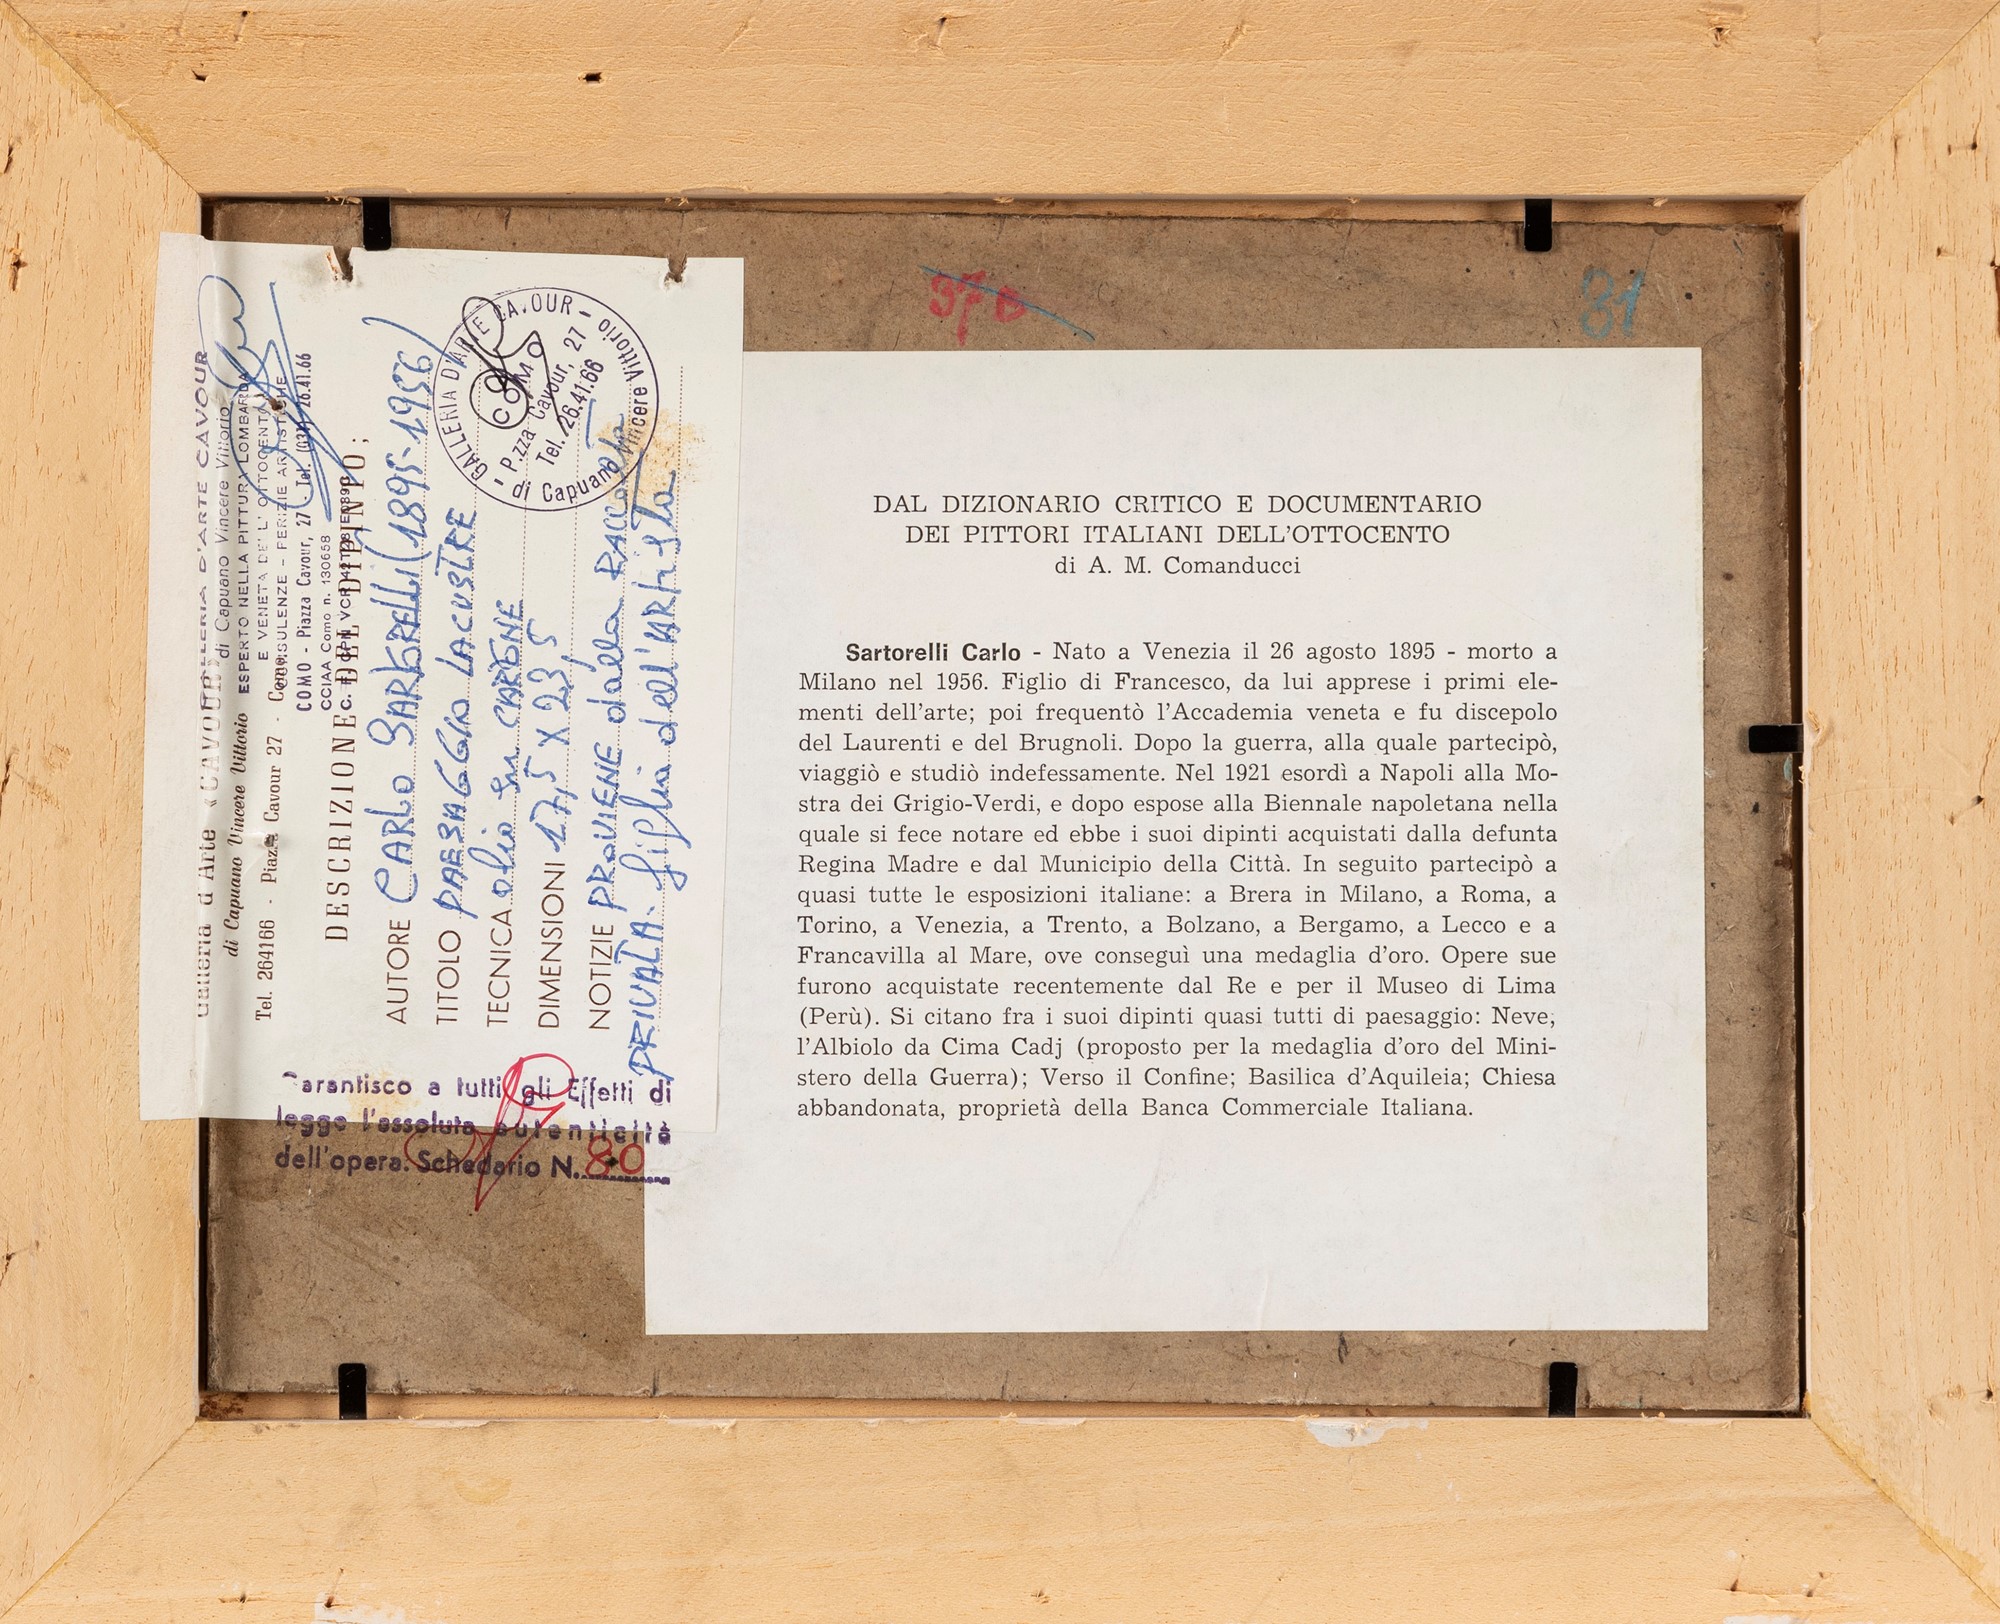 Galleria d'Arte «CAVOUR»
di Capuano Vincere Vittorio
Tel. 264166 - Piazza Cavour 27 - Como
GALLERIA D'ARTE CAVOUR
di Capuano Vincere Vittorio
ESPERTO NELLA PITTURA LOMBARDA
E VENETA DELL'OTTOCENTO
CONSULENZE - PERIZIE ARTISTICHE
COMO - Piazza Cavour, 27 - Tel. (031) 26.41.66
CCIAA Como n. 130658
DESCRIZIONE DEL DIPINTO;
AUTORE CARLO SARTORELLI (1895-1956)
TITOLO PAESAGGIO LACUSTRE
TECNICA olio su CARTONE
DIMENSIONI 17,5 x 23,5
NOTIZIE PROVIENE dalla RACCOLTA
PRIVATA. figlia dell'ARTISTA
GALLERIA D'ARTE CAVOUR -
COMO
- P.zza Cavour, 27
Tel. 26.41.66
- di Capuano Vincere Vittorio
Garantisco a tutti gli Effetti di
legge l'assoluta autenticità
dell'opera. Schedario N. 80
370
31
DAL DIZIONARIO CRITICO E DOCUMENTARIO
DEI PITTORI ITALIANI DELL'OTTOCENTO
di A. M. Comanducci
Sartorelli Carlo - Nato a Venezia il 26 agosto 1895 - morto a
Milano nel 1956. Figlio di Francesco, da lui apprese i primi ele-
menti dell'arte; poi frequentò l'Accademia veneta e fu discepolo
del Laurenti e del Brugnoli. Dopo la guerra, alla quale partecipò,
viaggiò e studiò indefessamente. Nel 1921 esordì a Napoli alla Mo-
stra dei Grigio-Verdi, e dopo espose alla Biennale napoletana nella
quale si fece notare ed ebbe i suoi dipinti acquistati dalla defunta
Regina Madre e dal Municipio della Città. In seguito partecipò a
quasi tutte le esposizioni italiane: a Brera in Milano, a Roma, a
Torino, a Venezia, a Trento, a Bolzano, a Bergamo, a Lecco e a
Francavilla al Mare, ove conseguì una medaglia d'oro. Opere sue
furono acquistate recentemente dal Re e per il Museo di Lima
(Perù). Si citano fra i suoi dipinti quasi tutti di paesaggio: Neve;
l'Albiolo da Cima Cadj (proposto per la medaglia d'oro del Mini-
stero della Guerra); Verso il Confine; Basilica d'Aquileia; Chiesa
abbandonata, proprietà della Banca Commerciale Italiana.